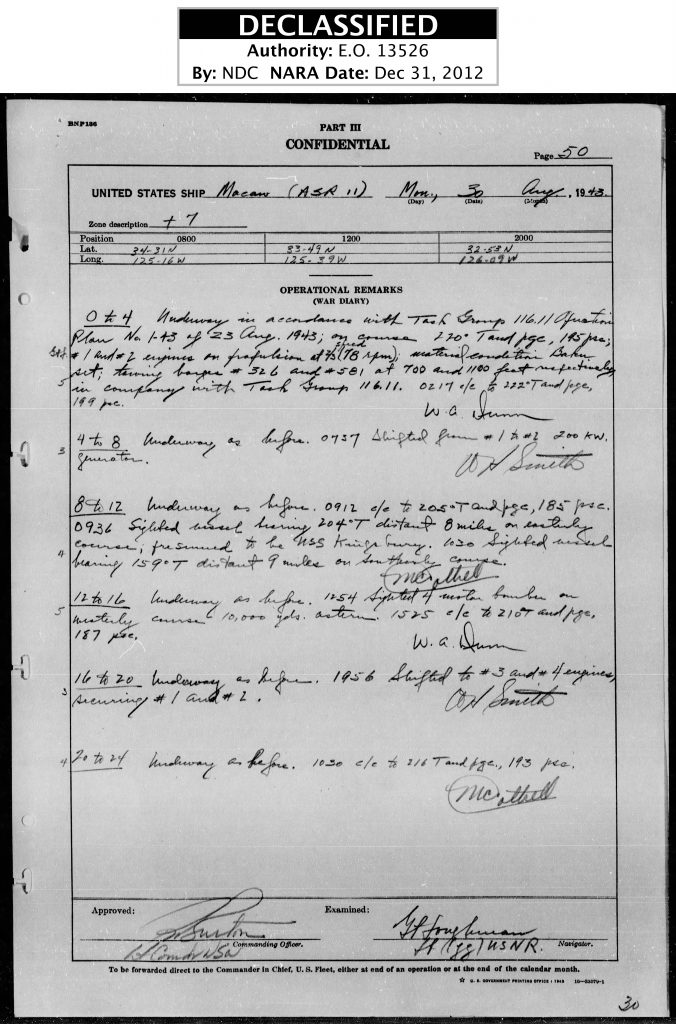 DECLASSIFIED
Authority: E.O. 13526
By: NDC NARA Date: Dec 31, 2012
BNP136
PART III
CONFIDENTIAL
Page 50
UNITED STATES SHIP Macaw (ASR 11) Mon., 30 Aug, 1943.
(Day) (Date) (Month)
Zone description + 7
Position 0800 1200 2000
Lat. 34-31N 33-49N 32-53N
Long. 125-16W 125-39W 126-09W
OPERATIONAL REMARKS
(WAR DIARY)
0 to 4 Underway in accordance with Task Group 116.11 Operation
Plan No. 1-43 of 23 Aug. 1943; on course 220°T and pgc, 195 psc;
speed
#1 and #2 engines on propulsion at 2/3 (78 rpm); material condition Baker
5 set; towing barges #326 and #581 at 700 and 1100 feet respectively,
in company with Task Group 116.11. 0217 c/c to 222°T and pgc,
199 psc.
W. A. Dunn
3 4 to 8 Underway as before. 0737 Shifted from #1 to #2 200 KW.
generator.
W H Smith
8 to 12 Underway as before. 0912 c/c to 205°T and pgc, 185 psc.
0936 Sighted vessel bearing 204°T distant 8 miles on easterly
4 course, presumed to be USS Kingsbury. 1030 Sighted vessel
bearing 159°T distant 9 miles on southerly course.
5 12 to 16 Underway as before. 1254 Sighted 4 motor bomber on
westerly course 10,000 yds. astern. 1525 c/c to 210°T and pgc,
187 psc.
W. A. Dunn
3 16 to 20 Underway as before. 1956 Shifted to #3 and #4 engines,
securing #1 and #2.
W H Smith
4 20 to 24 Underway as before. 1030 c/c to 216 T and pgc., 193 psc.
Approved: Examined:
Burton
Commanding Officer.
Lt Comdr USN
Lt (jg) USNR. Navigator.
To be forwarded direct to the Commander in Chief, U. S. Fleet, either at end of an operation or at the end of the calendar month.
☆ U. S. GOVERNMENT PRINTING OFFICE : 1943
30